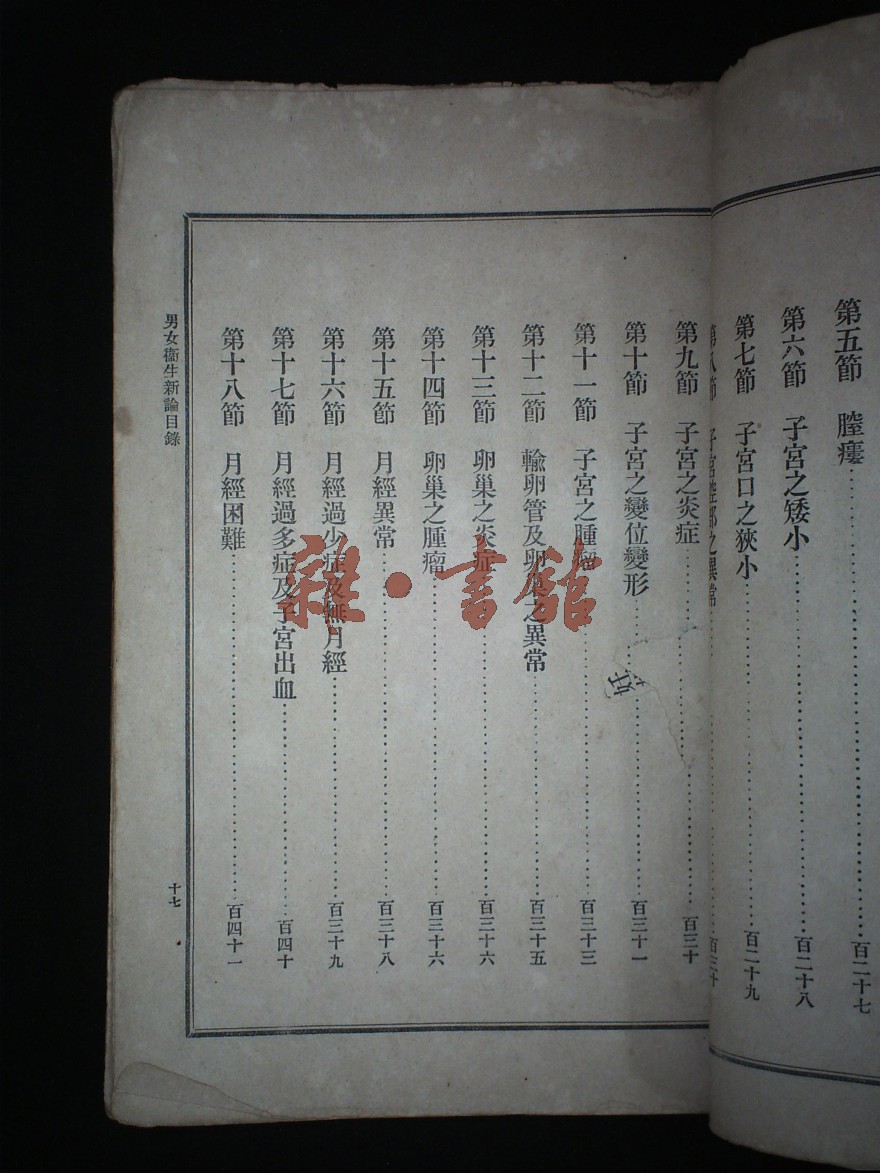 第五節 膣瘻 百二十七
第六節 子宮之矮小 百二十八
第七節 子宮口之狹小 百二十九
第八節 子宮腟部之異常 百三十
第九節 子宮之炎症 百三十
第十節 子宮之變位變形 百三十一
第十一節 子宮之腫瘤 百三十三
第十二節 輸卵管及卵巢之異常 百三十五
第十三節 卵巢之炎症 百三十六
第十四節 卵巢之腫瘤 百三十六
第十五節 月經異常 百三十八
第十六節 月經過少症及無月經 百三十九
第十七節 月經過多症及子宮出血 百四十
第十八節 月經困難 百四十一
男女衞生新論目錄 十七
雜·書館